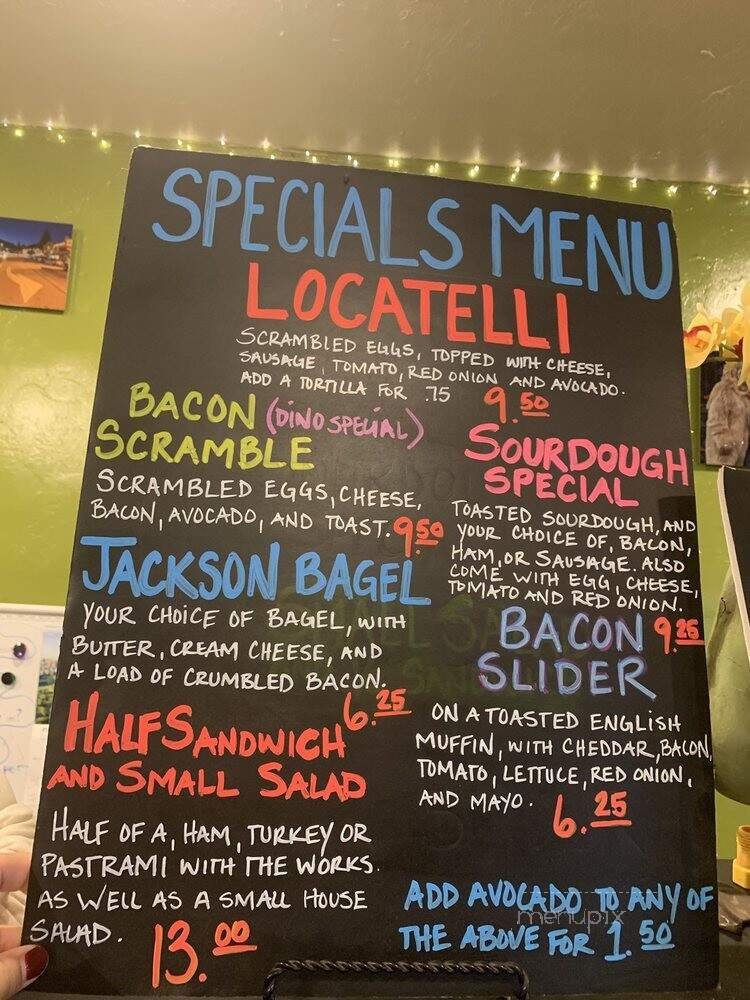 SPECIALS MENU
LOCATELLI
SCRAMBLED EGGS, TOPPED WITH CHEESE,
SAUSAGE, TOMATO, RED ONION AND AVOCADO.
ADD A TORTILLA FOR .75
9.50
BACON (DINO SPECIAL)
SCRAMBLE
SCRAMBLED EGGS, CHEESE,
BACON, AVOCADO, AND TOAST. 9.50
SOURDOUGH
SPECIAL
TOASTED SOURDOUGH, AND
YOUR CHOICE OF, BACON,
HAM, OR SAUSAGE. ALSO
COME WITH EGG, CHEESE,
TOMATO AND RED ONION.
9.25
JACKSON BAGEL
YOUR CHOICE OF BAGEL, WITH
BUTTER, CREAM CHEESE, AND
A LOAD OF CRUMBLED BACON.
6.25
BACON
SLIDER
ON A TOASTED ENGLISH
MUFFIN, WITH CHEDDAR, BACON,
TOMATO, LETTUCE, RED ONION,
AND MAYO. 6.25
HALF SANDWICH
AND SMALL SALAD
HALF OF A, HAM, TURKEY OR
PASTRAMI WITH THE WORKS.
AS WELL AS A SMALL HOUSE
SALAD. 13.00
ADD AVOCADO TO ANY OF
THE ABOVE FOR 1.50
menupix